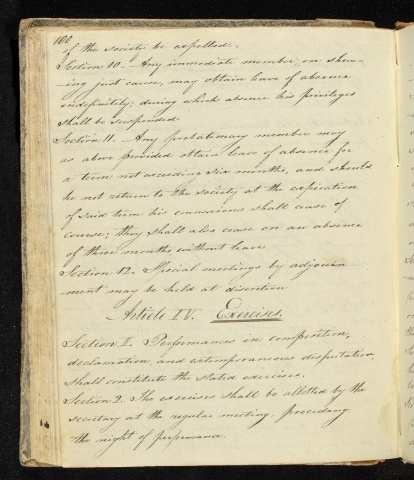 160
of the society be expelled.
Section 10. – Any immediate member, on shew-
-ing just cause, may obtain leave of absence
indefinitely; during which absence his privileges
shall be suspended
Section 11. – Any probationary member may
as above provided obtain leave of absence for
a term not exceeding six months, and should
he not return to the society at the expiration
of said term his connexions shall cease of
course; they shall also cease on an absence
of three months without leave
Section 12. Special meetings by adjourn
ment may be held at discretion
Article IV. Exercises.
Section I. Performances in composition,
declamation, and extemporaneous disputation,
shall constitute the stated exercises.
Section 2. The exercises shall be allotted by the
secretary at the regular meeting, preceding
the night of performance.